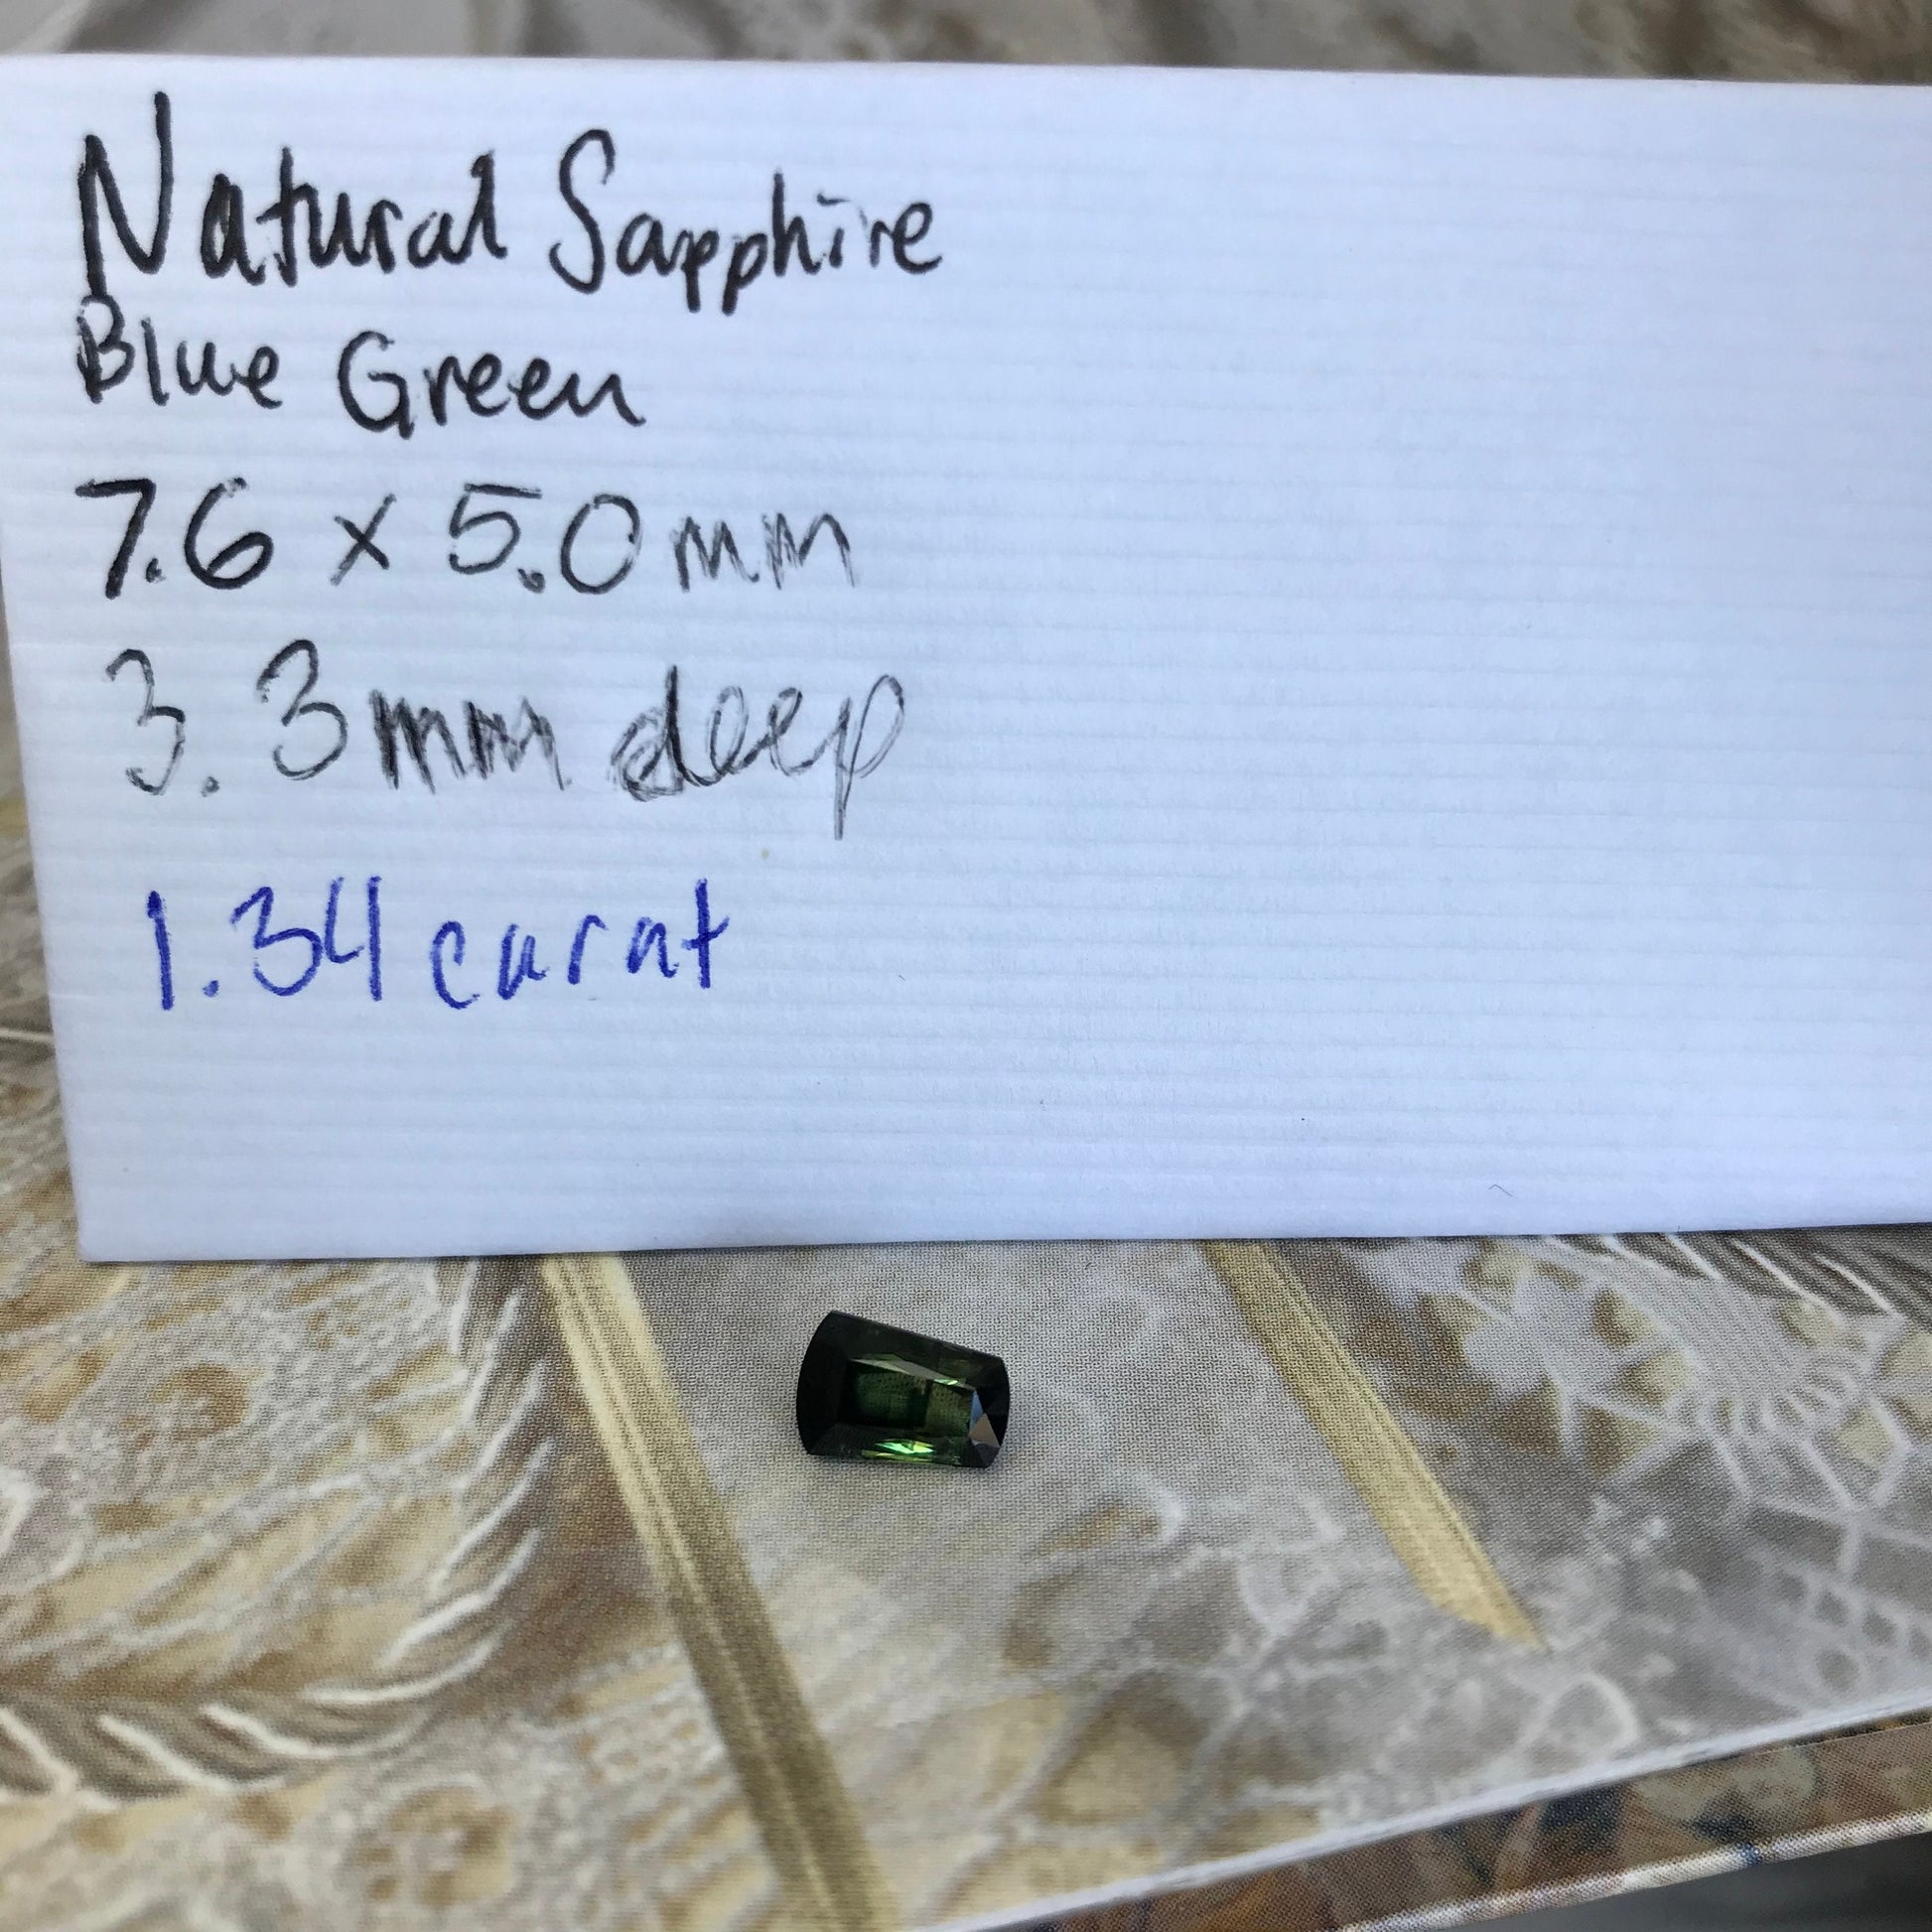 Natural Sapphire
Blue Green
7.6 x 5.0mm
3.3mm deep
1.34 carat